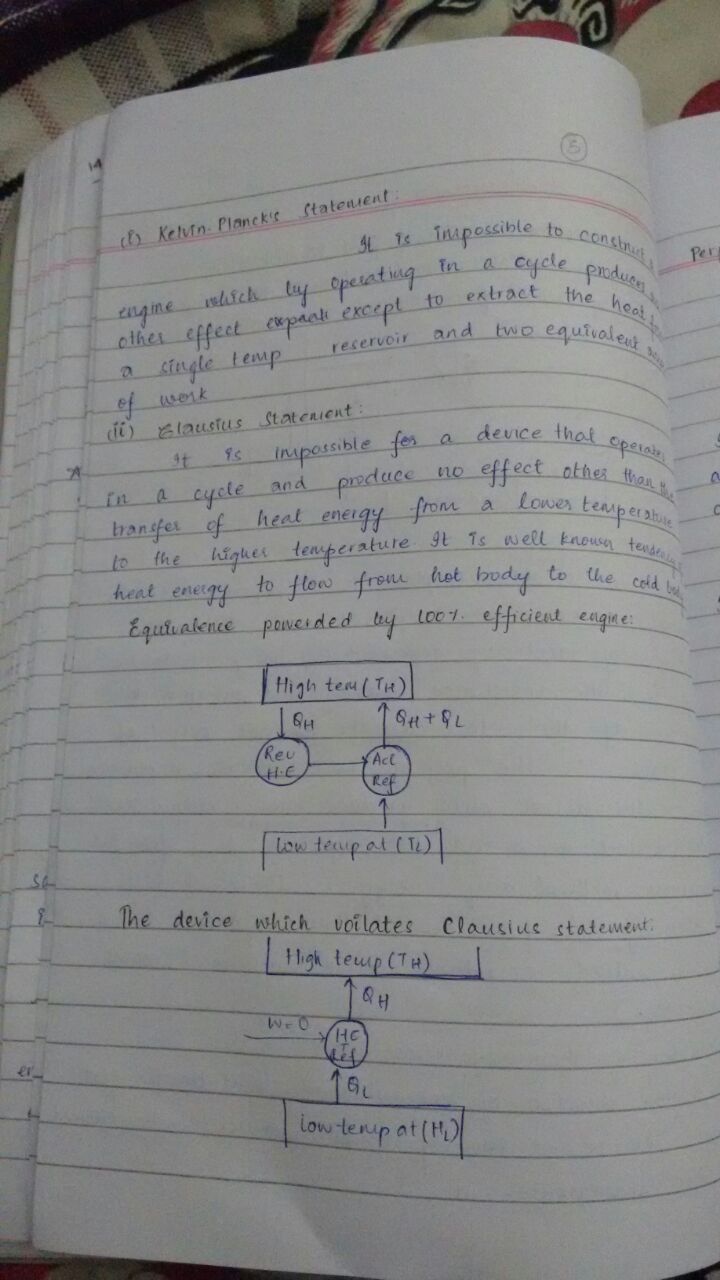 3
(i) Kelvin-Planck's Statement:
It is impossible to construct
engine which by operating in a cycle produces
other effect except to extract the heat
a single temp reservoir and two equivalent
of work
(ii) Clausius Statement:
It is impossible for a device that operates
in a cycle and produce no effect other than the
transfer of heat energy from a lower temperature
to the higher temperature. It is well known tendency
heat energy to flow from hot body to the cold body
Equivalence powerded by 100% efficient engine:
High tem (TH)
QH
QH + QL
Rev
H.E
Act
Ref
low temp at (TL)
The device which voilates Clausius statement:
High temp (TH)
QH
W=0
HE
Ref
QL
low temp at (HL)
14
Per